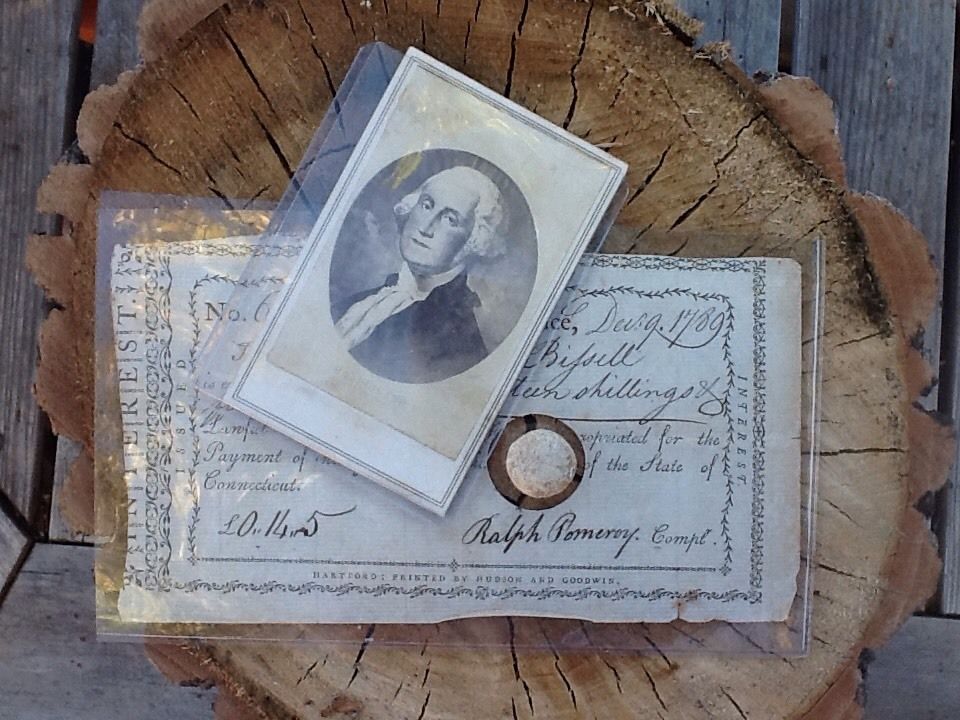 INTEREST.
ISSUED
No. 6
ce, Dec. 9. 1789
Bissell
teen shillings &
Lawful
ropriated for the
Payment of
of the State of
Connecticut.
£0.. 14.. 5
Ralph Pomeroy. Compt.
HARTFORD: PRINTED BY HUDSON AND GOODWIN.
INTEREST